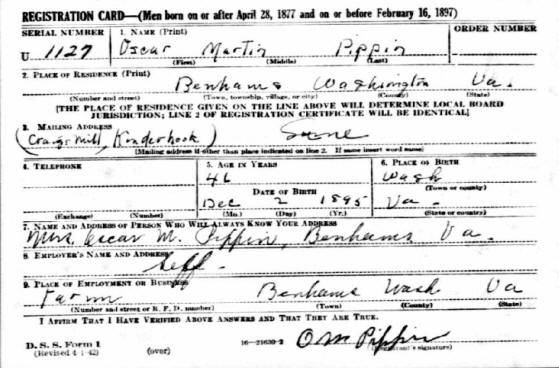 REGISTRATION CARD—(Men born on or after April 28, 1877 and on or before February 16, 1897)
SERIAL NUMBER 1. NAME (Print) ORDER NUMBER
U 1127 Oscar Martin Pippin
(First) (Middle) (Last)
2. PLACE OF RESIDENCE (Print)
Benhams Washington Va.
(Number and street) (Town, township, village, or city) (County) (State)
[THE PLACE OF RESIDENCE GIVEN ON THE LINE ABOVE WILL DETERMINE LOCAL BOARD
JURISDICTION; LINE 2 OF REGISTRATION CERTIFICATE WILL BE IDENTICAL]
3. MAILING ADDRESS
(Craigs Mill, Kinderhook) Same
[Mailing address if other than place indicated on line 2. If same insert word same]
4. TELEPHONE 5. AGE IN YEARS 6. PLACE OF BIRTH
46 Wash
DATE OF BIRTH (Town or county)
Dec 2 1895 Va.
(Exchange) (Number) (Mo.) (Day) (Yr.) (State or country)
7. NAME AND ADDRESS OF PERSON WHO WILL ALWAYS KNOW YOUR ADDRESS
Mrs. Oscar M. Pippin, Benhams Va.
8. EMPLOYER'S NAME AND ADDRESS
Self
9. PLACE OF EMPLOYMENT OR BUSINESS
Farm Benhams Wash Va
(Number and street or R. F. D. number) (Town) (County) (State)
I AFFIRM THAT I HAVE VERIFIED ABOVE ANSWERS AND THAT THEY ARE TRUE.
D. S. S. Form 1
(Revised 4-1-42) (over) 16—21630-2 O M Pippin
(Registrant's signature)